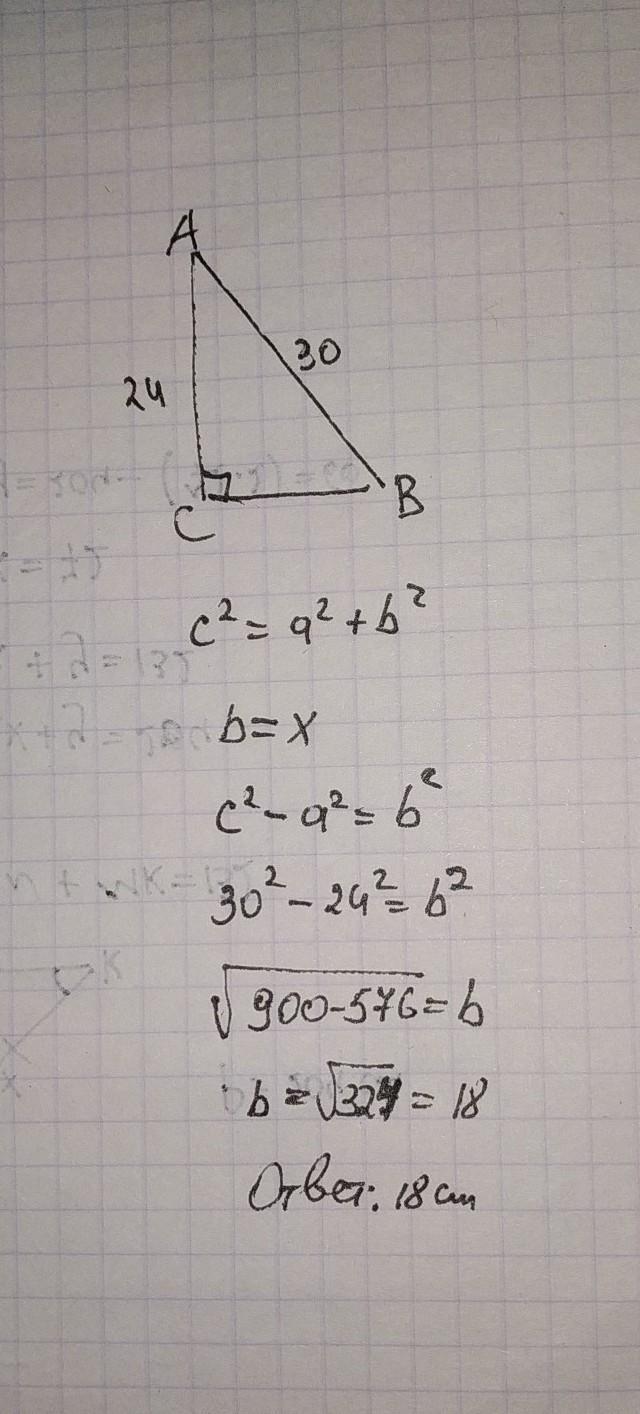 A
30
24
C
B
c² = a² + b²
b = x
c² - a² = b²
30² - 24² = b²
√900-576 = b
b = √324 = 18
Ответ: 18 см